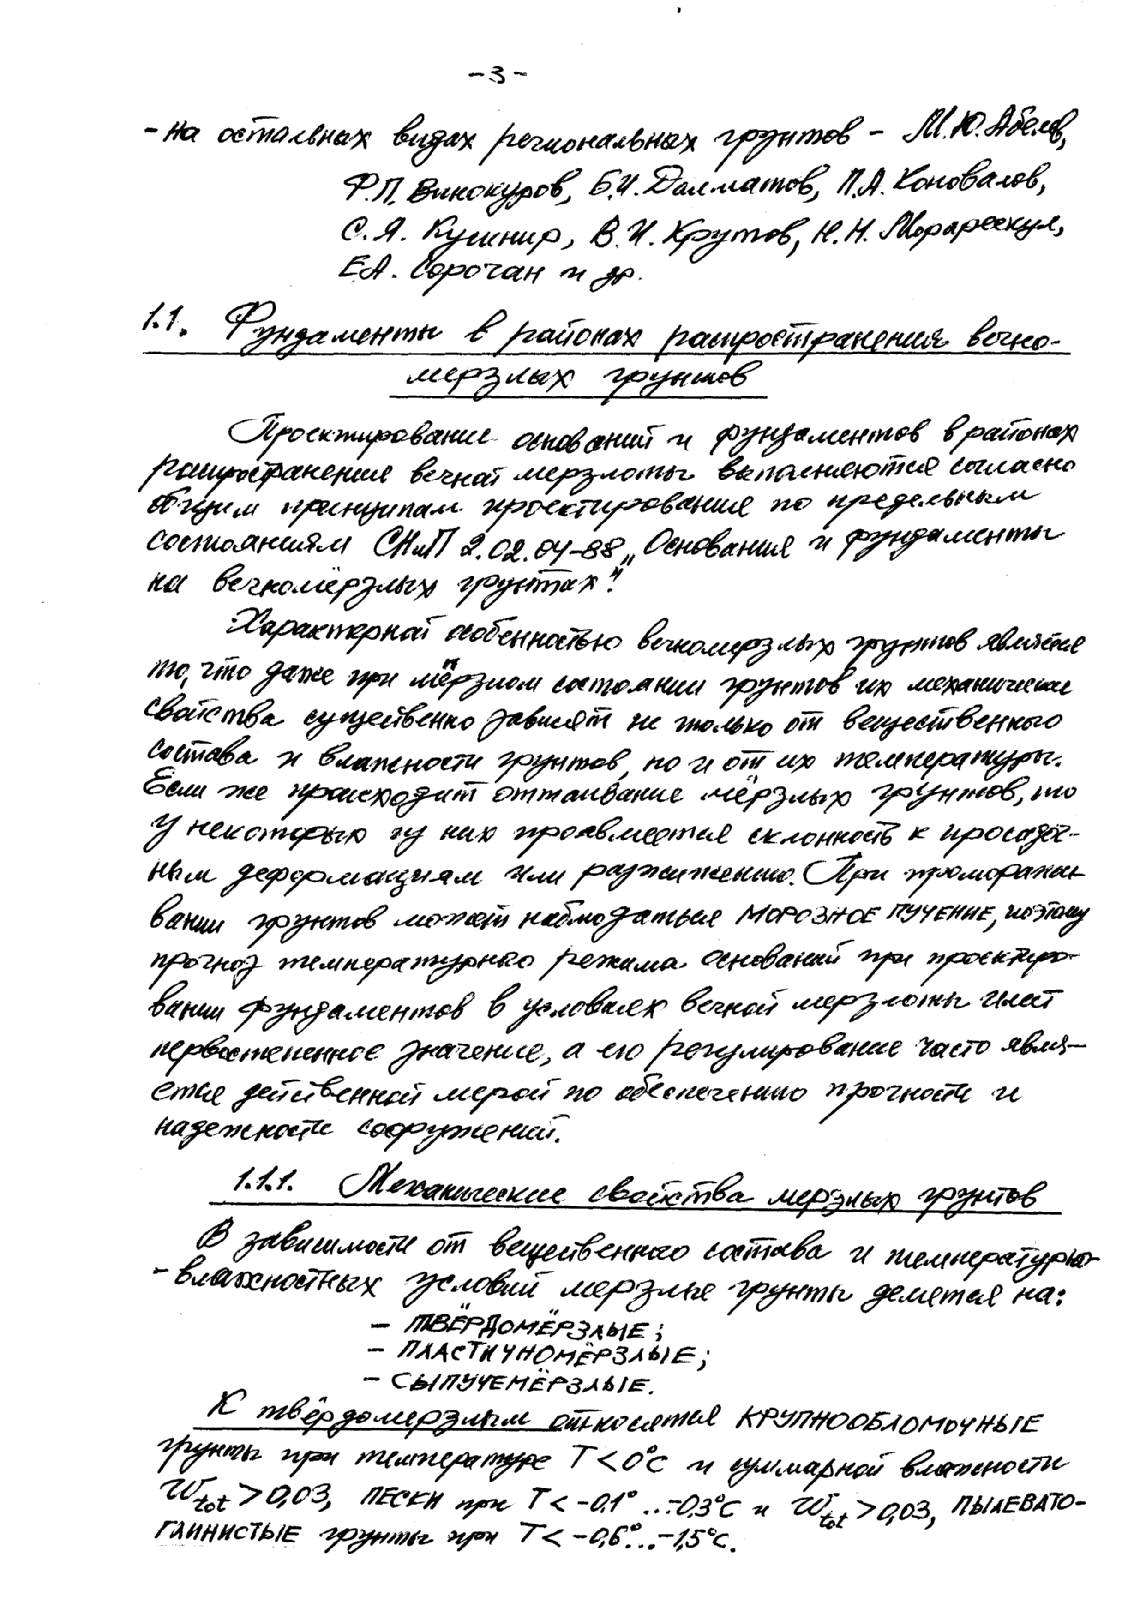 -3-
- на остальных видах региональных грунтов - М.Ю. Абелев,
Ф.П. Винокуров, Б.И. Далматов, П.А. Коновалов,
С.Я. Кушнир, В.И. Крутов, Н.Н. Морарескул,
Е.А. Сорочан и др.
1.1. Фундаменты в районах распространения вечно-
мерзлых грунтов
Проектирование оснований и фундаментов в районах
распространения вечной мерзлоты выполняются согласно
общим принципам проектирования по предельным
состояниям СНиП 2.02.04-88 „Основания и фундаменты
на вечномёрзлых грунтах".
Характерной особенностью вечномерзлых грунтов является
то, что даже при мёрзлом состоянии грунтов их механические
свойства существенно зависят не только от вещественного
состава и влажности грунтов, но и от их температуры.
Если же происходит оттаивание мёрзлых грунтов, то
у некоторых из них проявляется склонность к просадоч-
ным деформациям или разжижению. При проморажи-
вании грунтов может наблюдаться МОРОЗНОЕ ПУЧЕНИЕ, поэтому
прогноз температурного режима оснований при проектиро-
вании фундаментов в условиях вечной мерзлоты имеет
первостепенное значение, а его регулирование часто явля-
ется действенной мерой по обеспечению прочности и
надежности сооружений.
1.1.1. Механические свойства мерзлых грунтов
В зависимости от вещественного состава и температурно-
- влажностных условий мерзлые грунты делятся на:
- ТВЁРДОМЁРЗЛЫЕ;
- ПЛАСТИЧНОМЁРЗЛЫЕ;
- СЫПУЧЕМЁРЗЛЫЕ.
К твёрдомерзлым относятся КРУПНООБЛОМОЧНЫЕ
грунты при температуре T < 0°C и суммарной влажности
W_tot > 0,03, ПЕСКИ при T < -0,1°...-0,3°C и W_tot > 0,03, ПЫЛЕВАТО-
ГЛИНИСТЫЕ грунты при T < -0,6°...-1,5°C.